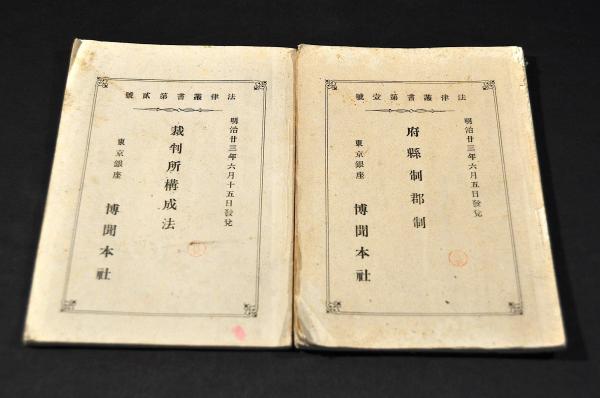 法律叢書第壹號
明治廿三年六月五日發兌
府縣制郡制
東京銀座 博聞本社
法律叢書第貳號
明治廿三年六月十五日發兌
裁判所構成法
東京銀座 博聞本社